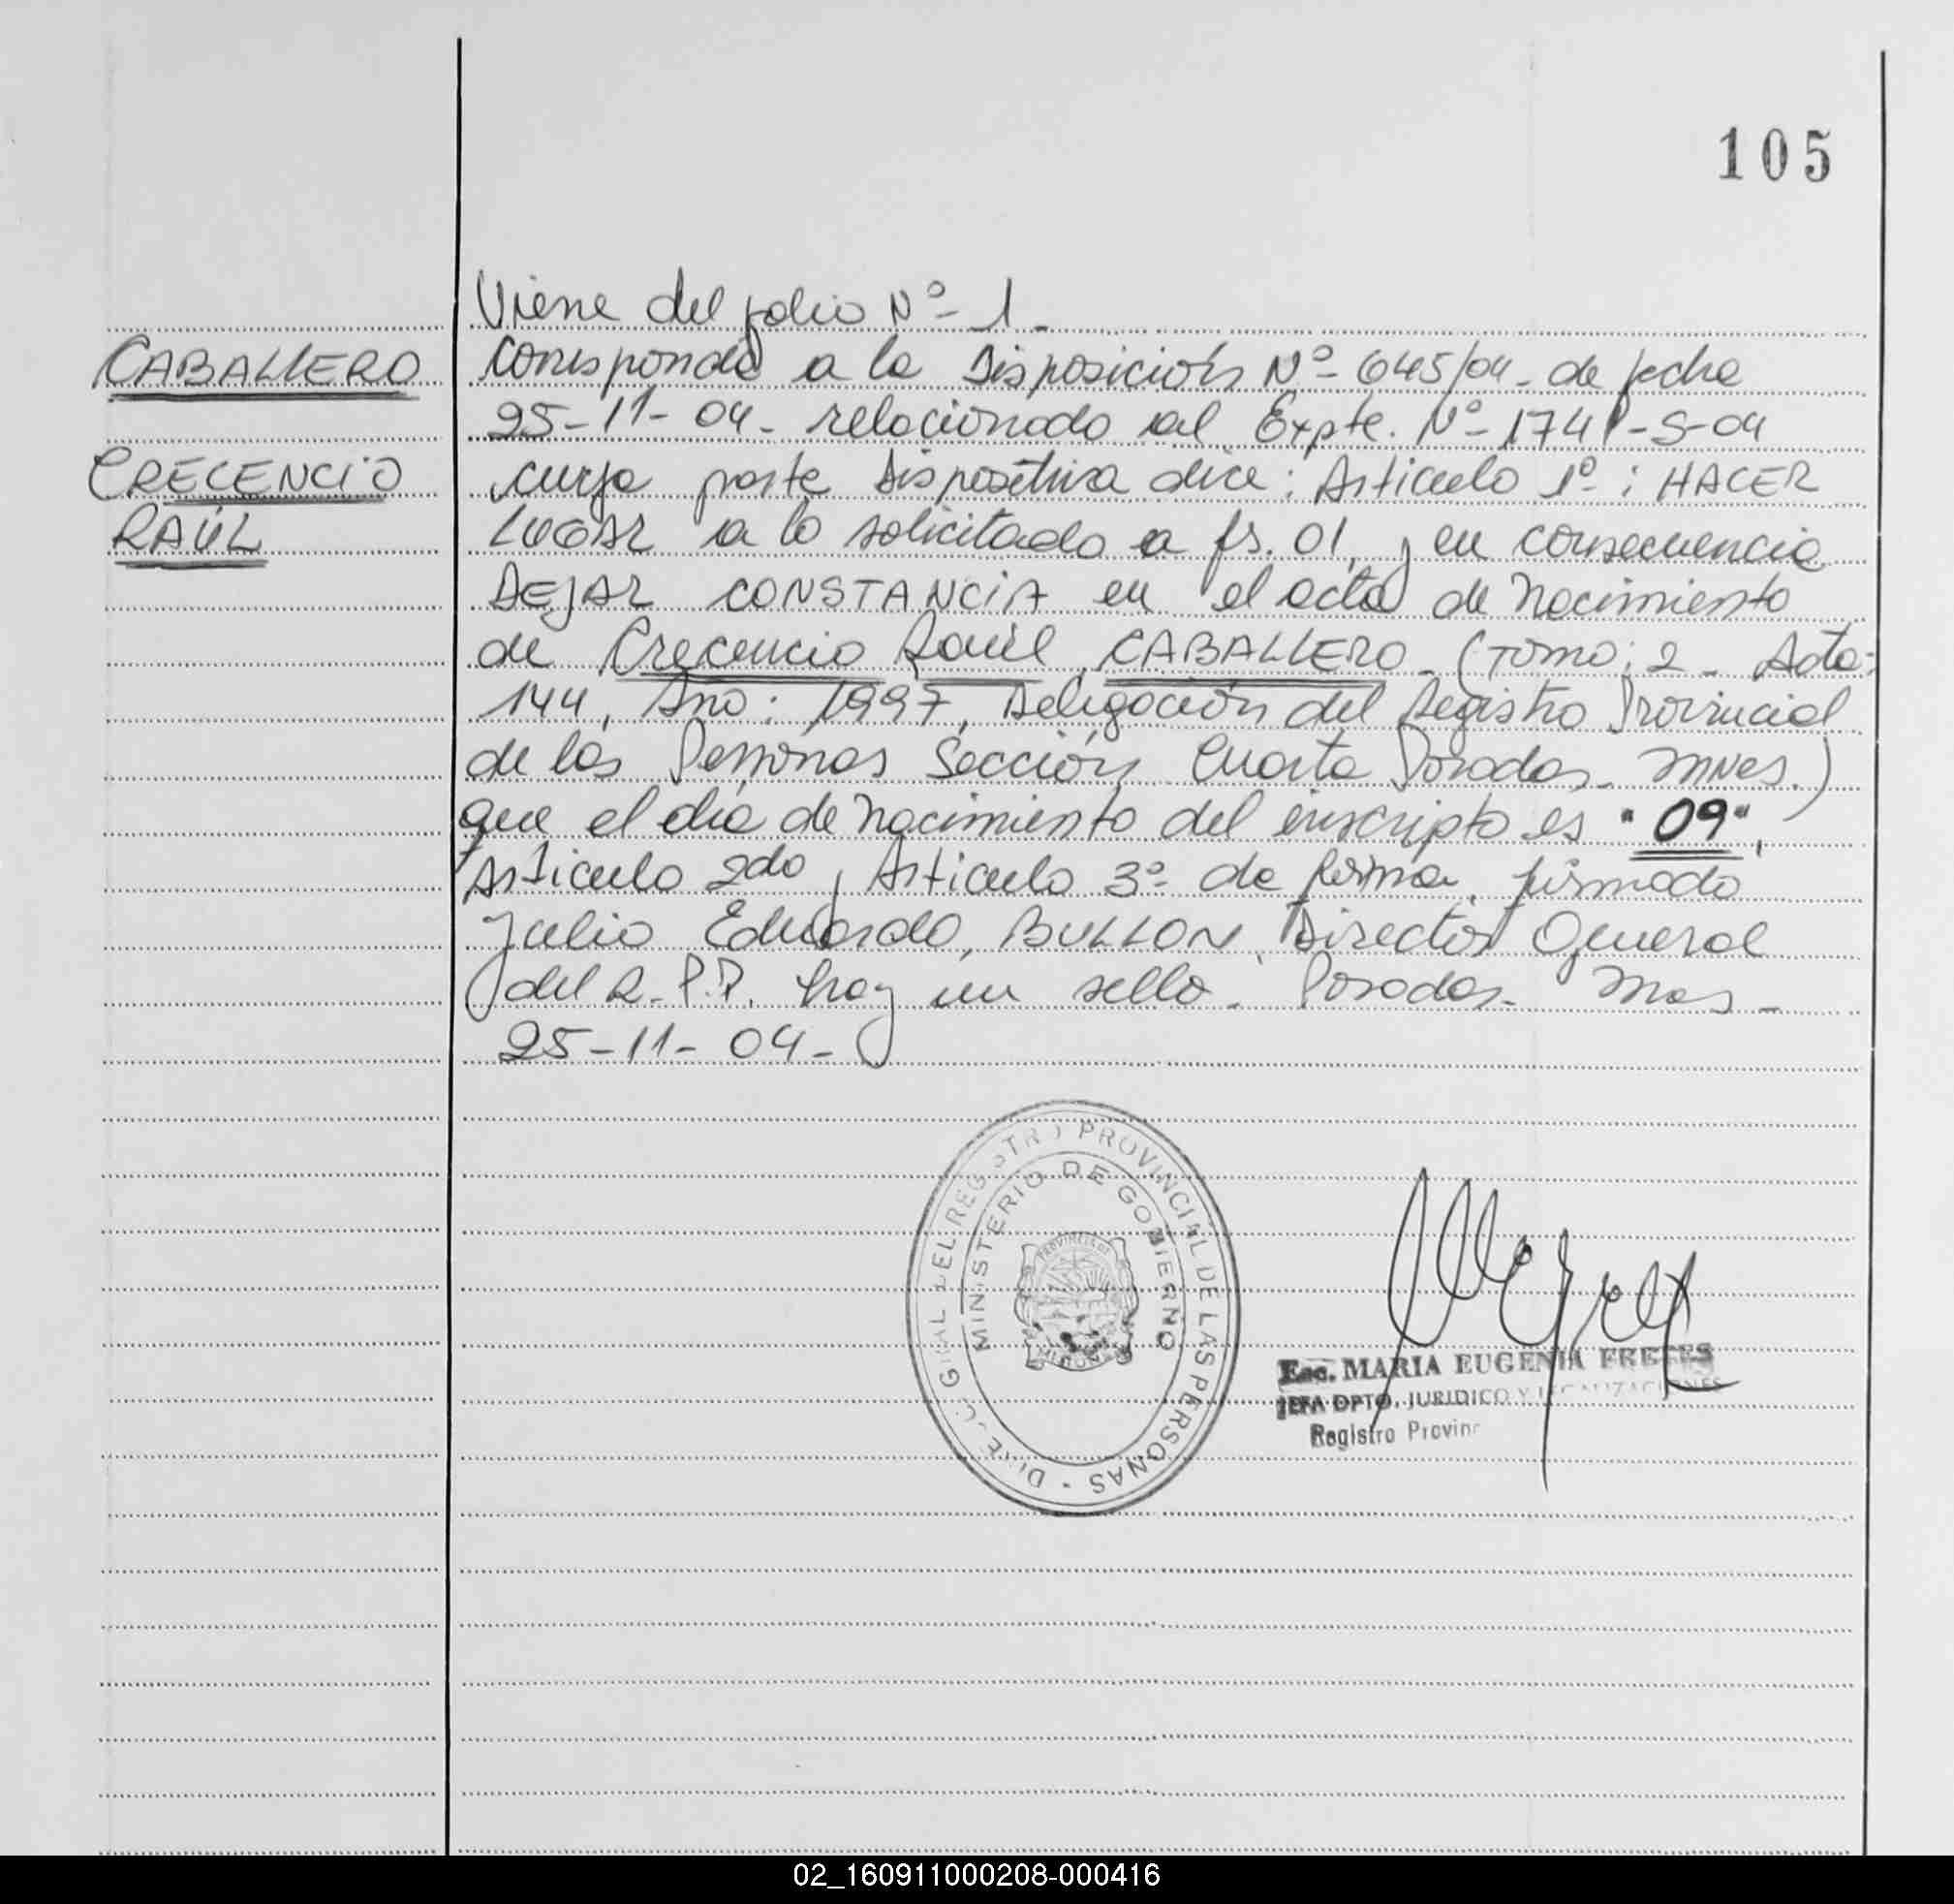 105
Viene del folio Nº-1-
CABALLERO
Corresponde a la Disposición Nº-645/04- de fecha
25-11-04- relacionado al Expte. Nº-1741-S-04
CRECENCIO
cuya parte Dispositiva dice: Articulo 1º: HACER
RAÚL
LUGAR a lo solicitado a fs. 01, y en consecuencia
DEJAR CONSTANCIA en el acta de nacimiento
de Crecencio Raúl CABALLERO- (Tomo: 2- Acta:
144, Año: 1997, Delegación del Registro Provincial
de las Personas Sección Cuarta Posadas- Mnes.)
que el día de nacimiento del inscripto es "09",
Articulo 2do, Articulo 3º- de forma. firmado
Julio Eduardo, BULLON, Director General
del R.P.P. hay un sello- Posadas- Mnes-
25-11-04-
REGISTRO PROVINCIAL DE LAS PERSONAS
MINISTERIO DE GOBIERNO
Esc. MARIA EUGENIA FRETES
JEFA DPTO. JURIDICO Y LEGALIZACIONES
Registro
02_160911000208-000416